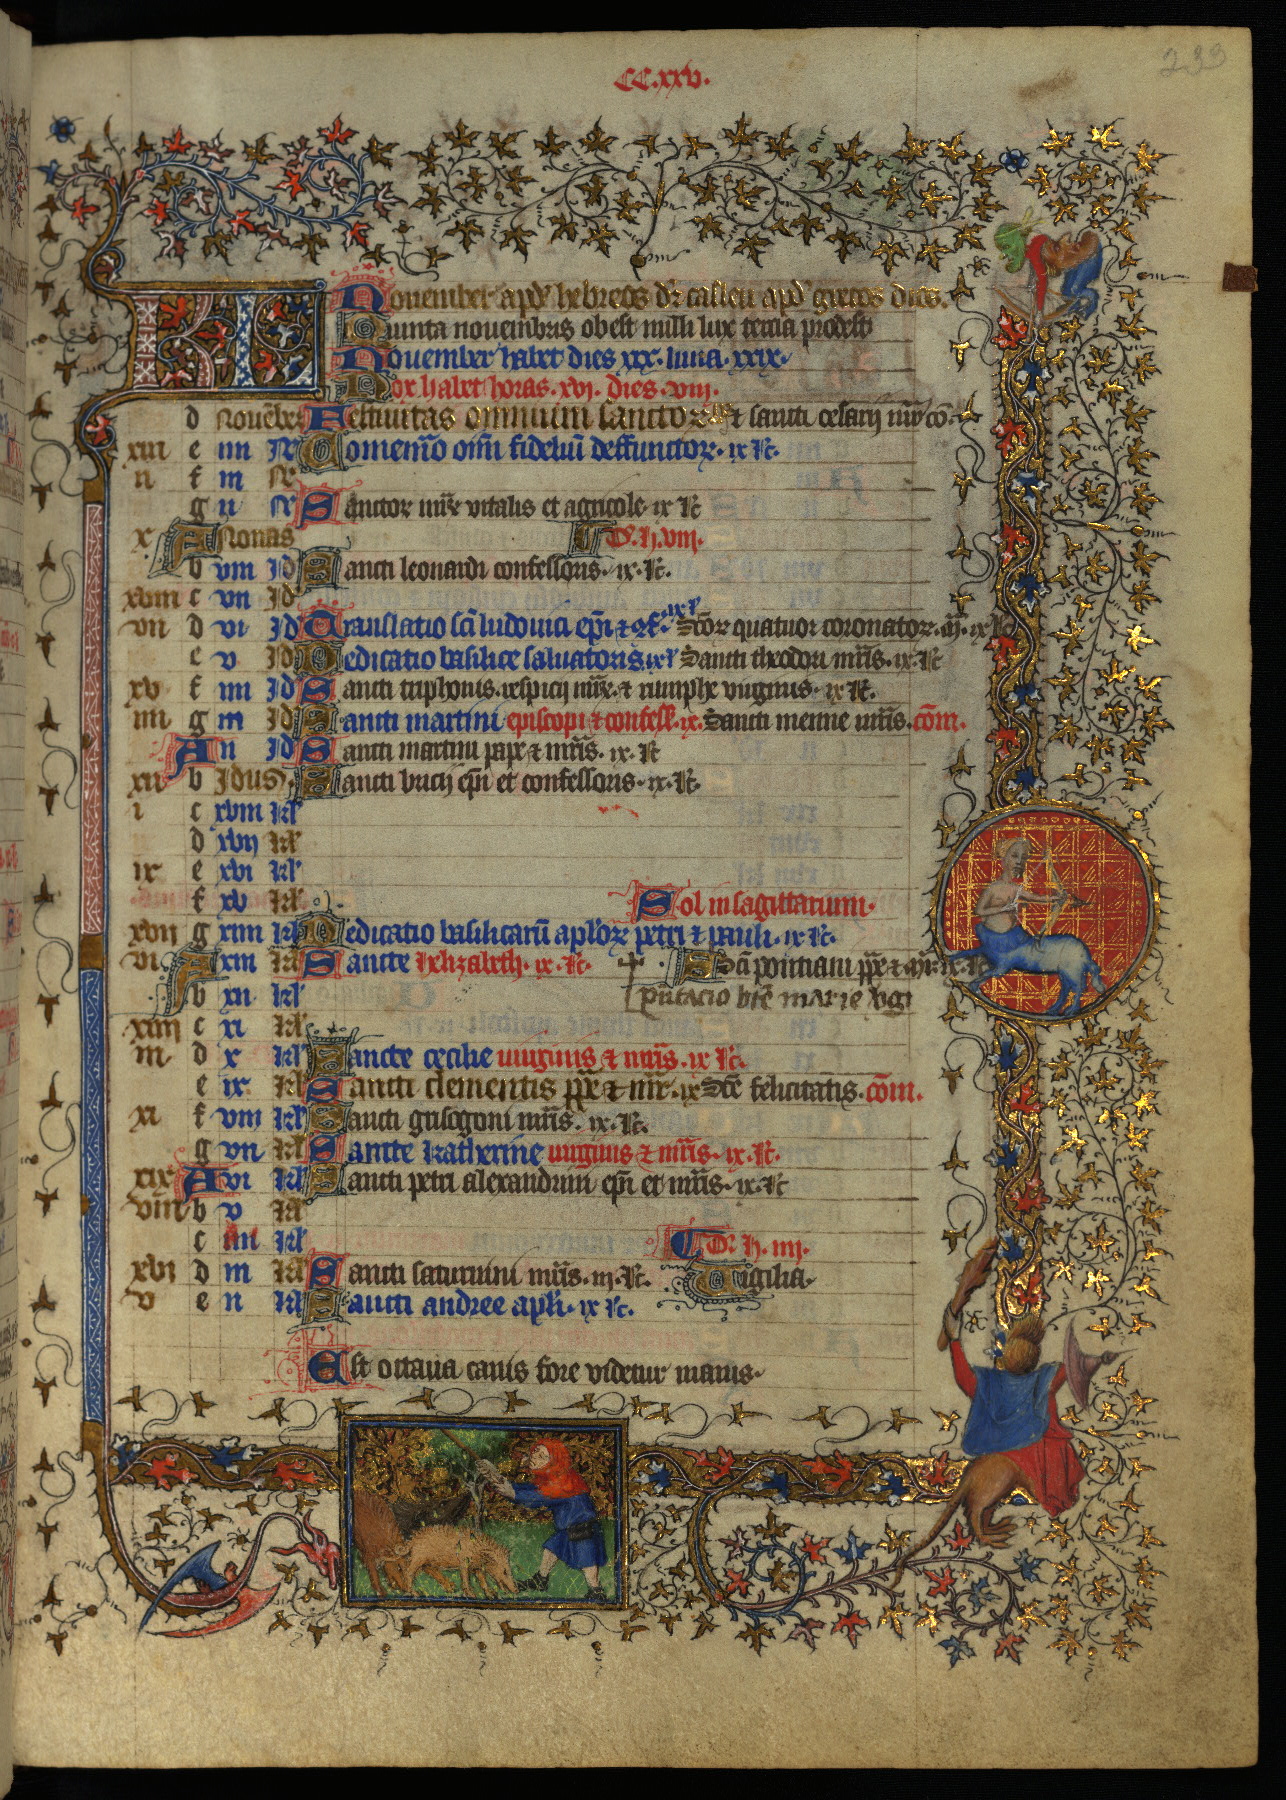 CC.xxv.
233
KL
Nouember apd' hebreos dr casleu apd' grecos dios.
Quinta nouembris obest nulli lux tercia prodest
Nouember habet dies xxx. luna. xxix.
Nox habet horas. xvj. dies. viij.
d Nouēber Festiuitas omnium sanctor et sancti cesarij
xiii e iiii N Comemō oīm fideliū deffunctor. ix lc.
ii f iii N
g ii N Sanctor mr vitalis et agricole. ix lc
x A Nonas D'. h. viii.
b viii Id Sancti leonardi confessoris. ix. lc.
xviii c vii Id
vii d vi Id Translatio scī ludouici epī et cf. ix l' Scōr quatuor coronator. ix
e v Id Dedicatio basilice saluatoris ix l' Sancti theodori mrīs. ix. lc
xv f iiii Id Sancti triphonis. respicij mr. et nimphe uirginis. ix lc.
iiii g iii Id Sancti martini episcopi et confess. ix. Sancti menne mrīs. cōm.
A ii Id Sancti martini pape et mrīs. ix. lc
xii b Idus Sancti bricij epī et confessoris. ix. lc.
i c xviii kl'
d xvii kl'
ix e xvi kl'
f xv kl' Sol in sagittarium.
xvii g xiiii kl' Dedicatio basilicarū aplōr petri et pauli. ix lc.
vi A xiii kl' Sancte helizabeth. ix. lc. Scī pontiani pp et mr. ix. lc
b xii kl' pñtacio btē marie vgī
xiiii c xi kl'
iii d x kl' Sancte cecilie uirginis et mrīs. ix lc.
e ix kl' Sancti clementis pp et mr. ix Scē felicitatis. cōm.
xi f viii kl' Sancti grisogoni mrīs. ix. lc.
g vii kl' Sancte katherine uirginis et mrīs. ix. lc.
xix A vi kl' Sancti petri alexandrini epī et mrīs. ix. lc
viii b v kl'
c iiii kl' D'. h. iiii.
xvi d iii kl' Sancti saturnini mrīs. iii. lc. Vigilia.
v e ii kl' Sancti andree aplī. ix lc.
Est octaua canis fore videtur manis.